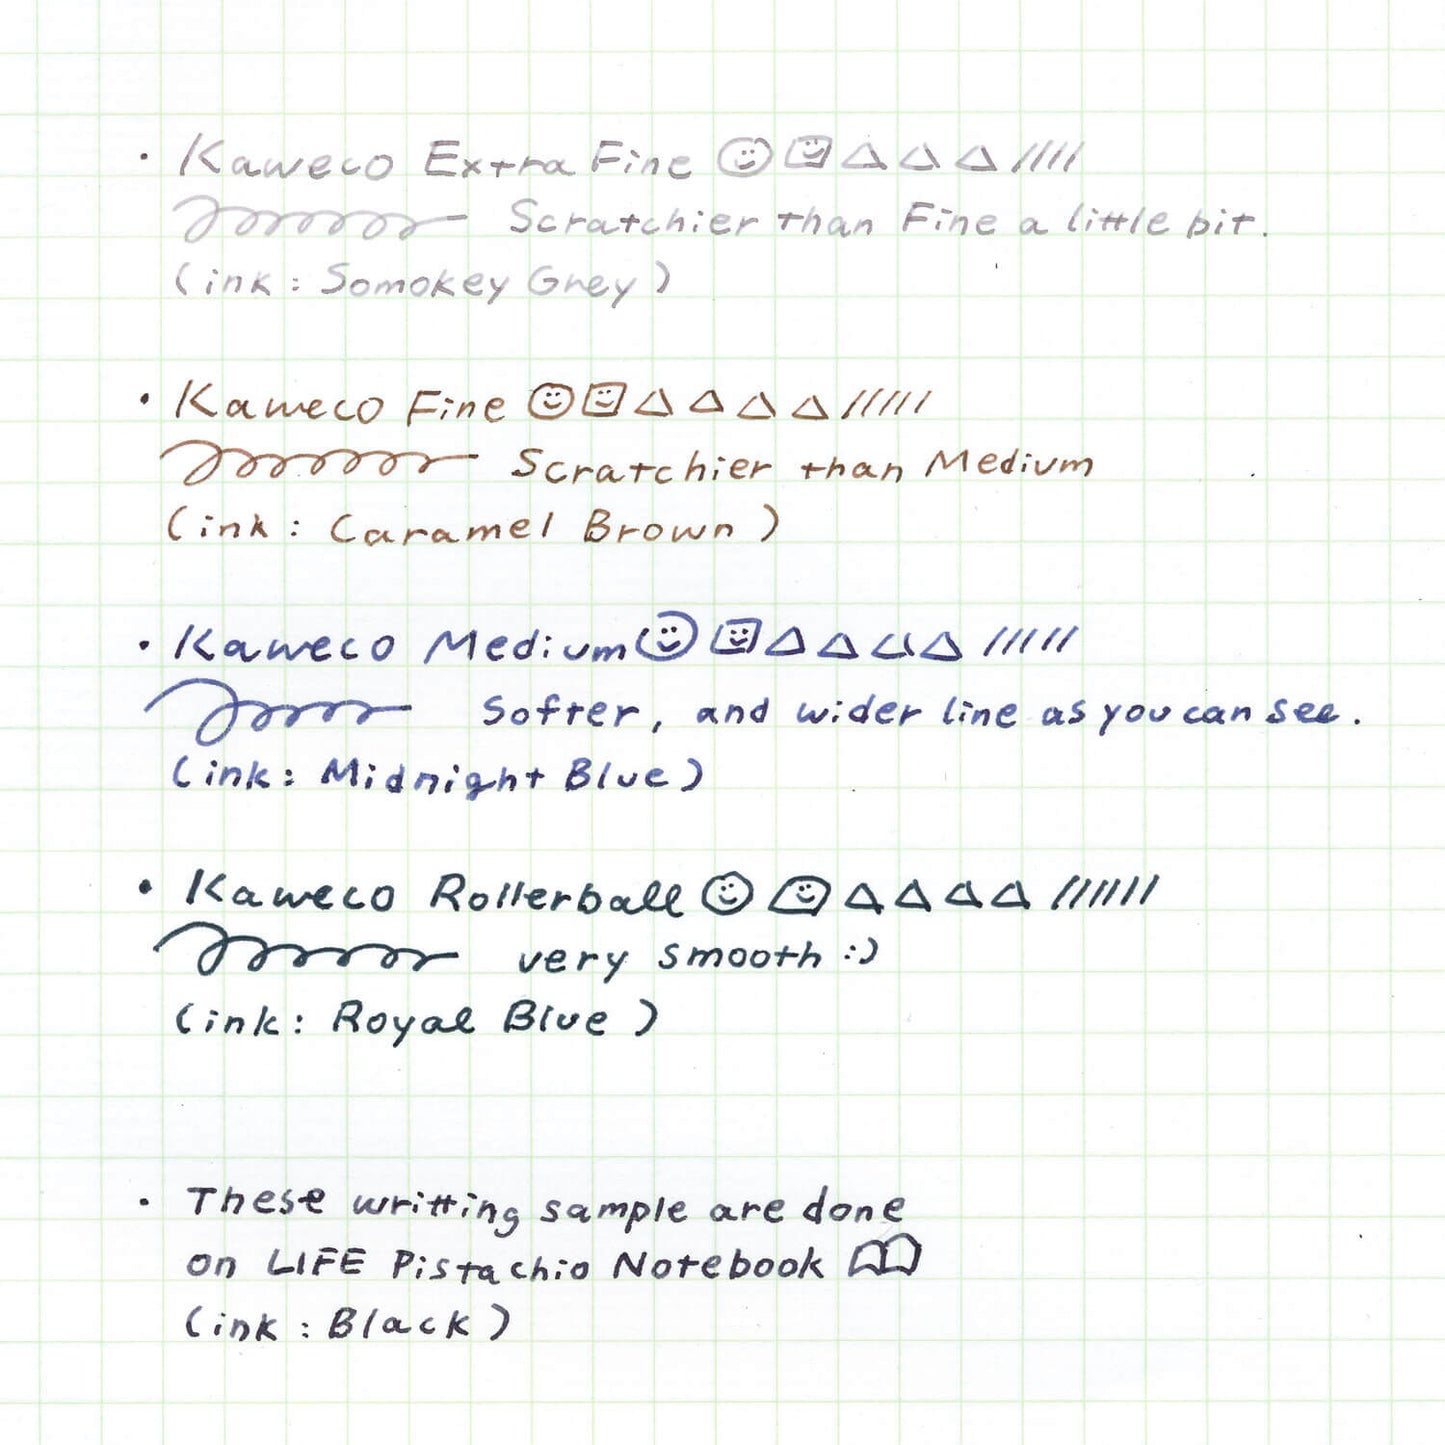 • Kaweco Extra Fine
Scratchier than Fine a little bit.
(ink: Somokey Grey)
• Kaweco Fine
Scratchier than Medium
(ink: Caramel Brown)
• Kaweco Medium
Softer, and wider line as you can see.
(ink: Midnight Blue)
• Kaweco Rollerball
very smooth :)
(ink: Royal Blue)
• These writting sample are done
on LIFE Pistachio Notebook
(ink: Black)